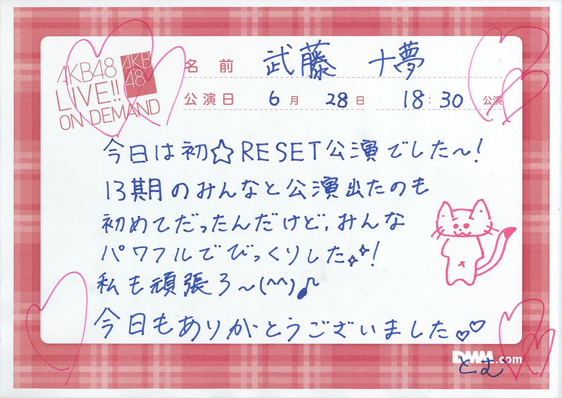 AKB48
LIVE!!
ON DEMAND
AKB
48
名前 武藤 十夢
公演日 6月 28日 18:30 公演
今日は初☆RESET公演でした〜!
13期のみんなと公演出たのも
初めてだったんだけど、みんな
パワフルでびっくりした!
私も頑張ろ〜(^^)♪
今日もありがとうございました♡♡
DMM.com
とむ